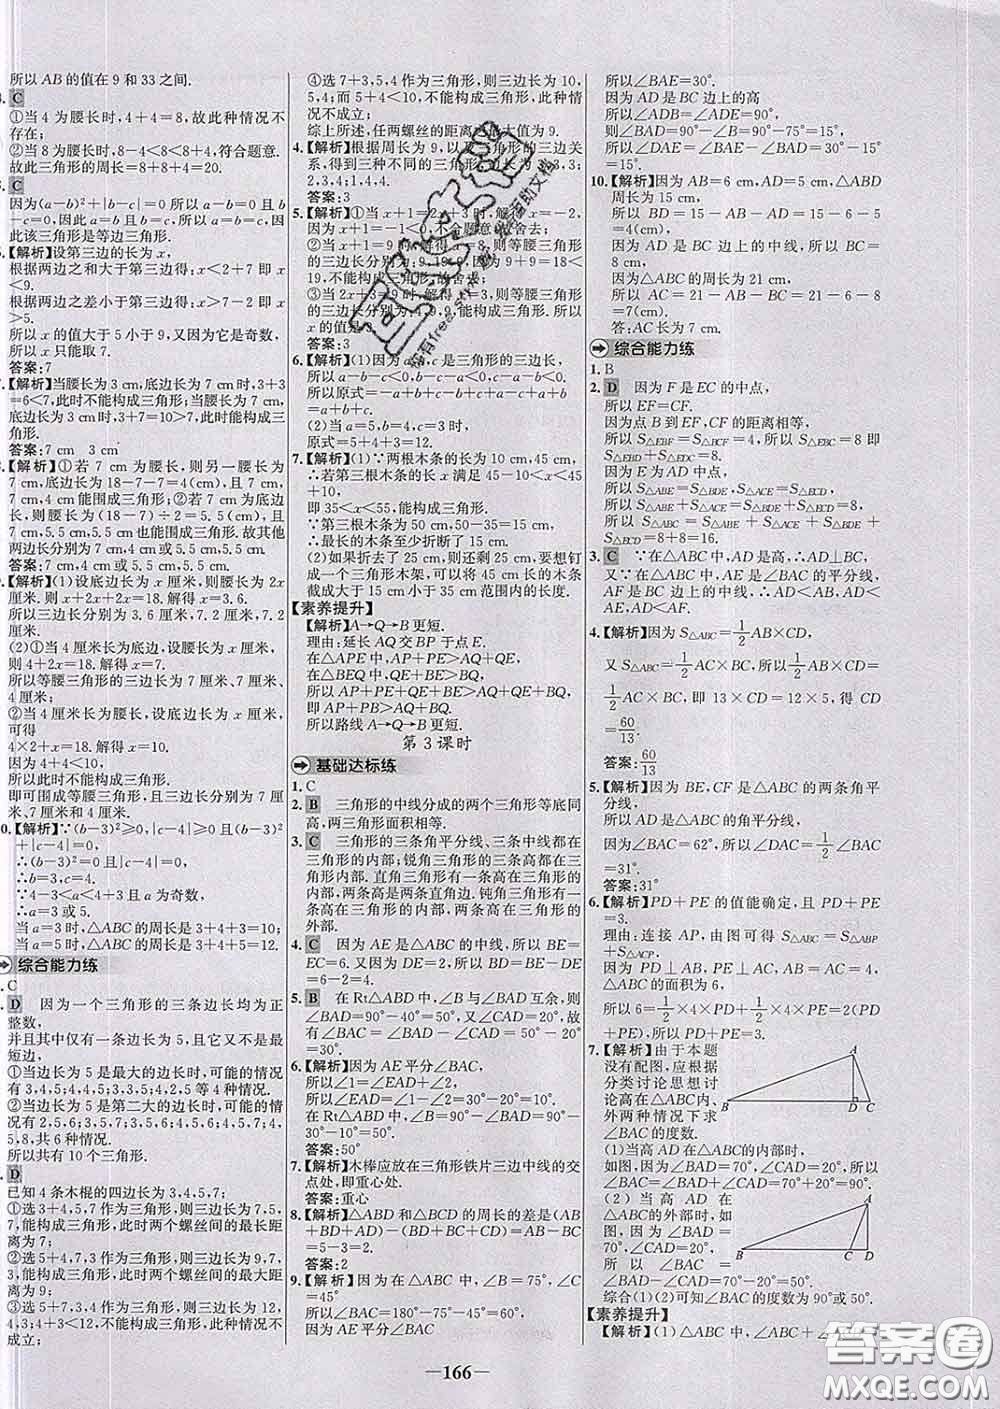 所以 AB 的值在 9 和 33 之间.
C
①当 4 为腰长时,4+4=8,故此种情况不
存在;
②当 8 为腰长时,8-4<8<8+4,符合题意.
故此三角形的周长=8+8+4=20.
C
因为(a-b)²+|b-c|=0 所以 a-b=0 且 b
-c=0,因此 a=b 且 b=c,故 a=b=c,因
此该三角形是等边三角形.
【解析】设第三边的长为 x,
根据两边之和大于第三边得:x<2+7 即 x
<9.
根据两边之差小于第三边得:x>7-2 即 x
>5.
所以 x 的值大于 5 小于 9,又因为它是奇数,
所以 x 只能取 7.
答案:7
【解析】当腰长为 3 cm,底边长为 7 cm 时,3+3
=6<7,此时不能构成三角形;当腰长为 7 cm,
底边长为 3 cm 时,3+7=10>7,此时能构成三
角形.
答案:7 cm 3 cm
【解析】①若 7 cm 为腰长,则另一腰长为
7 cm,底边长为 18-7-7=4(cm),且 7 cm,
7 cm,4 cm 能围成三角形;②若 7 cm 为底边
长,则腰长为(18-7)÷2=5.5(cm),且 7 cm,
5.5 cm,5.5 cm 也能围成三角形.故其他
两边长分别为 7 cm,4 cm 或 5.5 cm,5.5 cm.
答案:7 cm,4 cm 或 5.5 cm,5.5 cm
【解析】(1)设底边长为 x 厘米,则腰长为 2x
厘米.则 x+2x+2x=18. 解得 x=3.6.
所以三边长分别为 3.6 厘米,7.2 厘米,7.2
厘米.
(2)①当 4 厘米长为底边,设腰长为 x 厘米,
则 4+2x=18. 解得 x=7.
所以等腰三角形的三边长为 7 厘米、7 厘米、
4 厘米;
②当 4 厘米长为腰长,设底边长为 x 厘米,
可得
4×2+x=18. 解得 x=10.
因为 4+4<10,
所以此时不能构成三角形.
即可围成等腰三角形,且三边长分别为 7 厘
米、7 厘米和 4 厘米.
0.【解析】∵(b-3)²≥0,|c-4|≥0 且(b-3)²
+|c-4|=0,
∴(b-3)²=0 且|c-4|=0,
∴b=3,c=4.
∵4-3<a<4+3 且 a 为奇数,
∴a=3 或 5.
当 a=3 时,△ABC 的周长是 3+4+3=10;
当 a=5 时,△ABC 的周长是 3+4+5=12.
综合能力练
C
D 因为一个三角形的三条边长均为正
整数,
并且其中仅有一条边长为 5,且它又不是最
短边,
①当边长为 5 是最大的边长时,可能的情况
有 3,4,5;4,4,5;3,3,5;4,2,5 等 4 种情况.
②当边长为 5 是第二大的边长时,可能的情
况有 2,5,6;3,5,7;3,5,6;4,5,6;4,5,7;4,
5,8,共 6 种情况.
所以共有 10 个三角形.
D
已知 4 条木棍的四边长为 3,4,5,7;
①选 3+4,5,7 作为三角形,则三边长为 7,5,
7,能构成三角形,此时两个螺丝间的最长距
离为 7;
②选 5+4,7,3 作为三角形,则三边长为 9,7,
3,能构成三角形,此时两个螺丝间的最大距
离为 9;
③选 5+7,3,4 作为三角形,则三边长为 12,
4,3;4+3<12,不能构成三角形,此种情况不
成立;
④选 7+3,5,4 作为三角形,则三边长为 10,
5,4;而 5+4<10,不能构成三角形,此种情况
不成立;
综上所述,任两螺丝的距离的最大值为 9.
4.【解析】根据周长为 9,以及三角形的三边关
系,得到三种不同的三角形,边长为 3,3,3;
2,3,4;1,4,4.
答案:3
5.【解析】①当 x+1=2x+3 时,解得 x=-2,
因为 x+1=-1<0,不合题意,故舍去;
②当 x+1=9 时,解得 x=8,则等腰三角形的
三边长分别为:9,19,9,因为 9+9=18<
19,不能构成三角形,故舍去;
③当 2x+3=9 时,解得 x=3,则等腰三角形的
三边长分别为:4,9,9,能构成三角形.所以
x 的值是 3.
答案:3
6.【解析】(1)因为 a,b,c 是三角形的三边长,
所以 a-b-c<0,b-c-a<0,c-a-b<0,
所以原式=-a+b+c-b+c+a-c+a+b
=a+b+c.
(2)当 a=5,b=4,c=3 时,
原式=5+4+3=12.
7.【解析】(1)∵两根木条的长为 10 cm,45 cm,
∴若第三根木条的长 x 满足 45-10<x<45
+10,
即 35<x<55,能构成三角形.
∵第三根木条为 50 cm,50-35=15 cm,
∴最长的木条至少折断了 15 cm.
(2)如果折去了 25 cm,则还剩 25 cm,要想钉
成一个三角形木架,可以将 45 cm 长的木条
截成大于 15 cm 小于 35 cm 范围内的长度.
【素养提升】
【解析】A→Q→B 更短.
理由:延长 AQ 交 BP 于点 E.
在△APE 中,AP+PE>AQ+QE,
在△BEQ 中,QE+BE>BQ,
所以 AP+PE+QE+BE>AQ+QE+BQ,
即 AP+PB>AQ+BQ.
所以路线 A→Q→B 更短.
第 3 课时
基础达标练
1. C
2. B 三角形的中线分成的两个三角形等底同
高,两三角形面积相等.
3. C 三角形的三条角平分线、三条中线都在
三角形的内部;锐角三角形的三条高都在三
角形的内部.直角三角形有一条高在三角形
的内部,两条高是两条直角边.钝角三角形有
一条高在三角形的内部,两条高在三角形的
外部.
4. C 因为 AE 是△ABC 的中线,所以 BE=
EC=6. 又因为 DE=2,所以 BD=BE-DE
=6-2=4.
5. B 在 Rt△ABD 中,∠B 与∠BAD 互余,则
∠BAD=90°-40°=50°,又∠CAD=20°,故
有∠BAC=∠BAD-∠CAD=50°-20°
=30°.
6.【解析】因为 AE 平分∠BAC,
所以∠1=∠EAD+∠2,
所以∠EAD=∠1-∠2=30°-20°=10°,
在 Rt△ABD 中,∠B=90°-∠BAD
=90°-30°-10°=50°.
答案:50°
7.【解析】木棒应放在三角形铁片三边中线的交
点处,即重心处.
答案:重心
8.【解析】△ABD 和△BCD 的周长的差是(AB
+BD+AD)-(BD+BC+CD)=AB-BC
=5-3=2.
答案:2
9.【解析】因为在△ABC 中,∠B=75°,∠C
=45°
所以∠BAC=180°-75°-45°=60°,
因为 AE 平分∠BAC
所以∠BAE=30°.
因为 AD 是 BC 边上的高
所以∠ADB=∠ADE=90°,
则∠BAD=90°-∠B=90°-75°=15°,
所以∠DAE=∠BAE-∠BAD=15°.
10.【解析】因为 AB=6 cm,AD=5 cm,△ABD
周长为 15 cm,
所以 BD=15-AB-AD=15-6-5
=4(cm),
因为 AD 是 BC 边上的中线,所以 BC=
8 cm,
因为△ABC 的周长为 21 cm,
所以 AC=21-AB-BC=21-6-8=
7(cm).
答:AC 长为 7 cm.
综合能力练
1. B
2. D 因为 F 是 EC 的中点,
所以 EF=CF.
因为点 B 到 EF,CF 的距离相等,
所以 S△EBF=S△BCF=4,所以 S△EBC=8 即
S△EBD+S△EDC=8.
因为 E 为 AD 中点,
所以 S△ABE=S△BDE,S△ACE=S△ECD,
所以 S△ABE+S△ACE=S△BDE+S△ECD=8,
所以 S△ABC=S△ABE+S△ACE+S△BDE+
S△ECD=8+8=16.
3. C ∵在△ABC 中,AD 是高,∴AD⊥BC,
又∵在△ABC 中,AE 是∠BAC 的平分线,
AF 是 BC 边上的中线,∴AD<AE,AD<AB,
AD<AC,AD<AF.
4.【解析】因为 S△ABC=1/2 AB×CD,
又 S△ABC=1/2 AC×BC,所以 1/2 AB×CD=
1/2 AC×BC,即 13×CD=12×5,得 CD
=60/13.
答案:60/13
5.【解析】因为 BE,CF 是△ABC 的两条角平
分线,
所以 AD 是△ABC 的角平分线,
因为∠BAC=62°,所以∠DAC=1/2 ∠BAC
=31°.
答案:31°
6.【解析】PD+PE 的值能确定,且 PD+PE
=3.
理由:连接 AP,由图可得 S△ABC=S△ABP
+S△ACP,
因为 PD⊥AB,PE⊥AC,AB=AC=4,
△ABC 的面积为 6,
所以 6=1/2×4×PD+1/2×4×PE=2(PD
+PE),所以 PD+PE=3.
7.【解析】由于本题
没有配图,应根据
分类讨论思想讨
论高在△ABC 的内、
外两种情况下求
∠BAC 的度数.
A
B
D
C
(1)当高 AD 在△ABC 的内部时,
如图,因为∠BAD=70°,∠CAD=20°,所以
∠BAC=∠BAD+∠CAD=70°+20°=90°.
(2)当高 AD 在
△ABC 的外部时,如
图,因为∠BAD=
70°,∠CAD=20°,
A
B
C
D
所以∠BAC=∠BAD-∠CAD=70°
-20°=50°.
综合(1)(2)可知∠BAC 的度数为 90°或 50°.
【素养提升】
【解析】(1)△ABC 中,∠ABC+∠ACB
—166—
答案圈
MXQE.COM